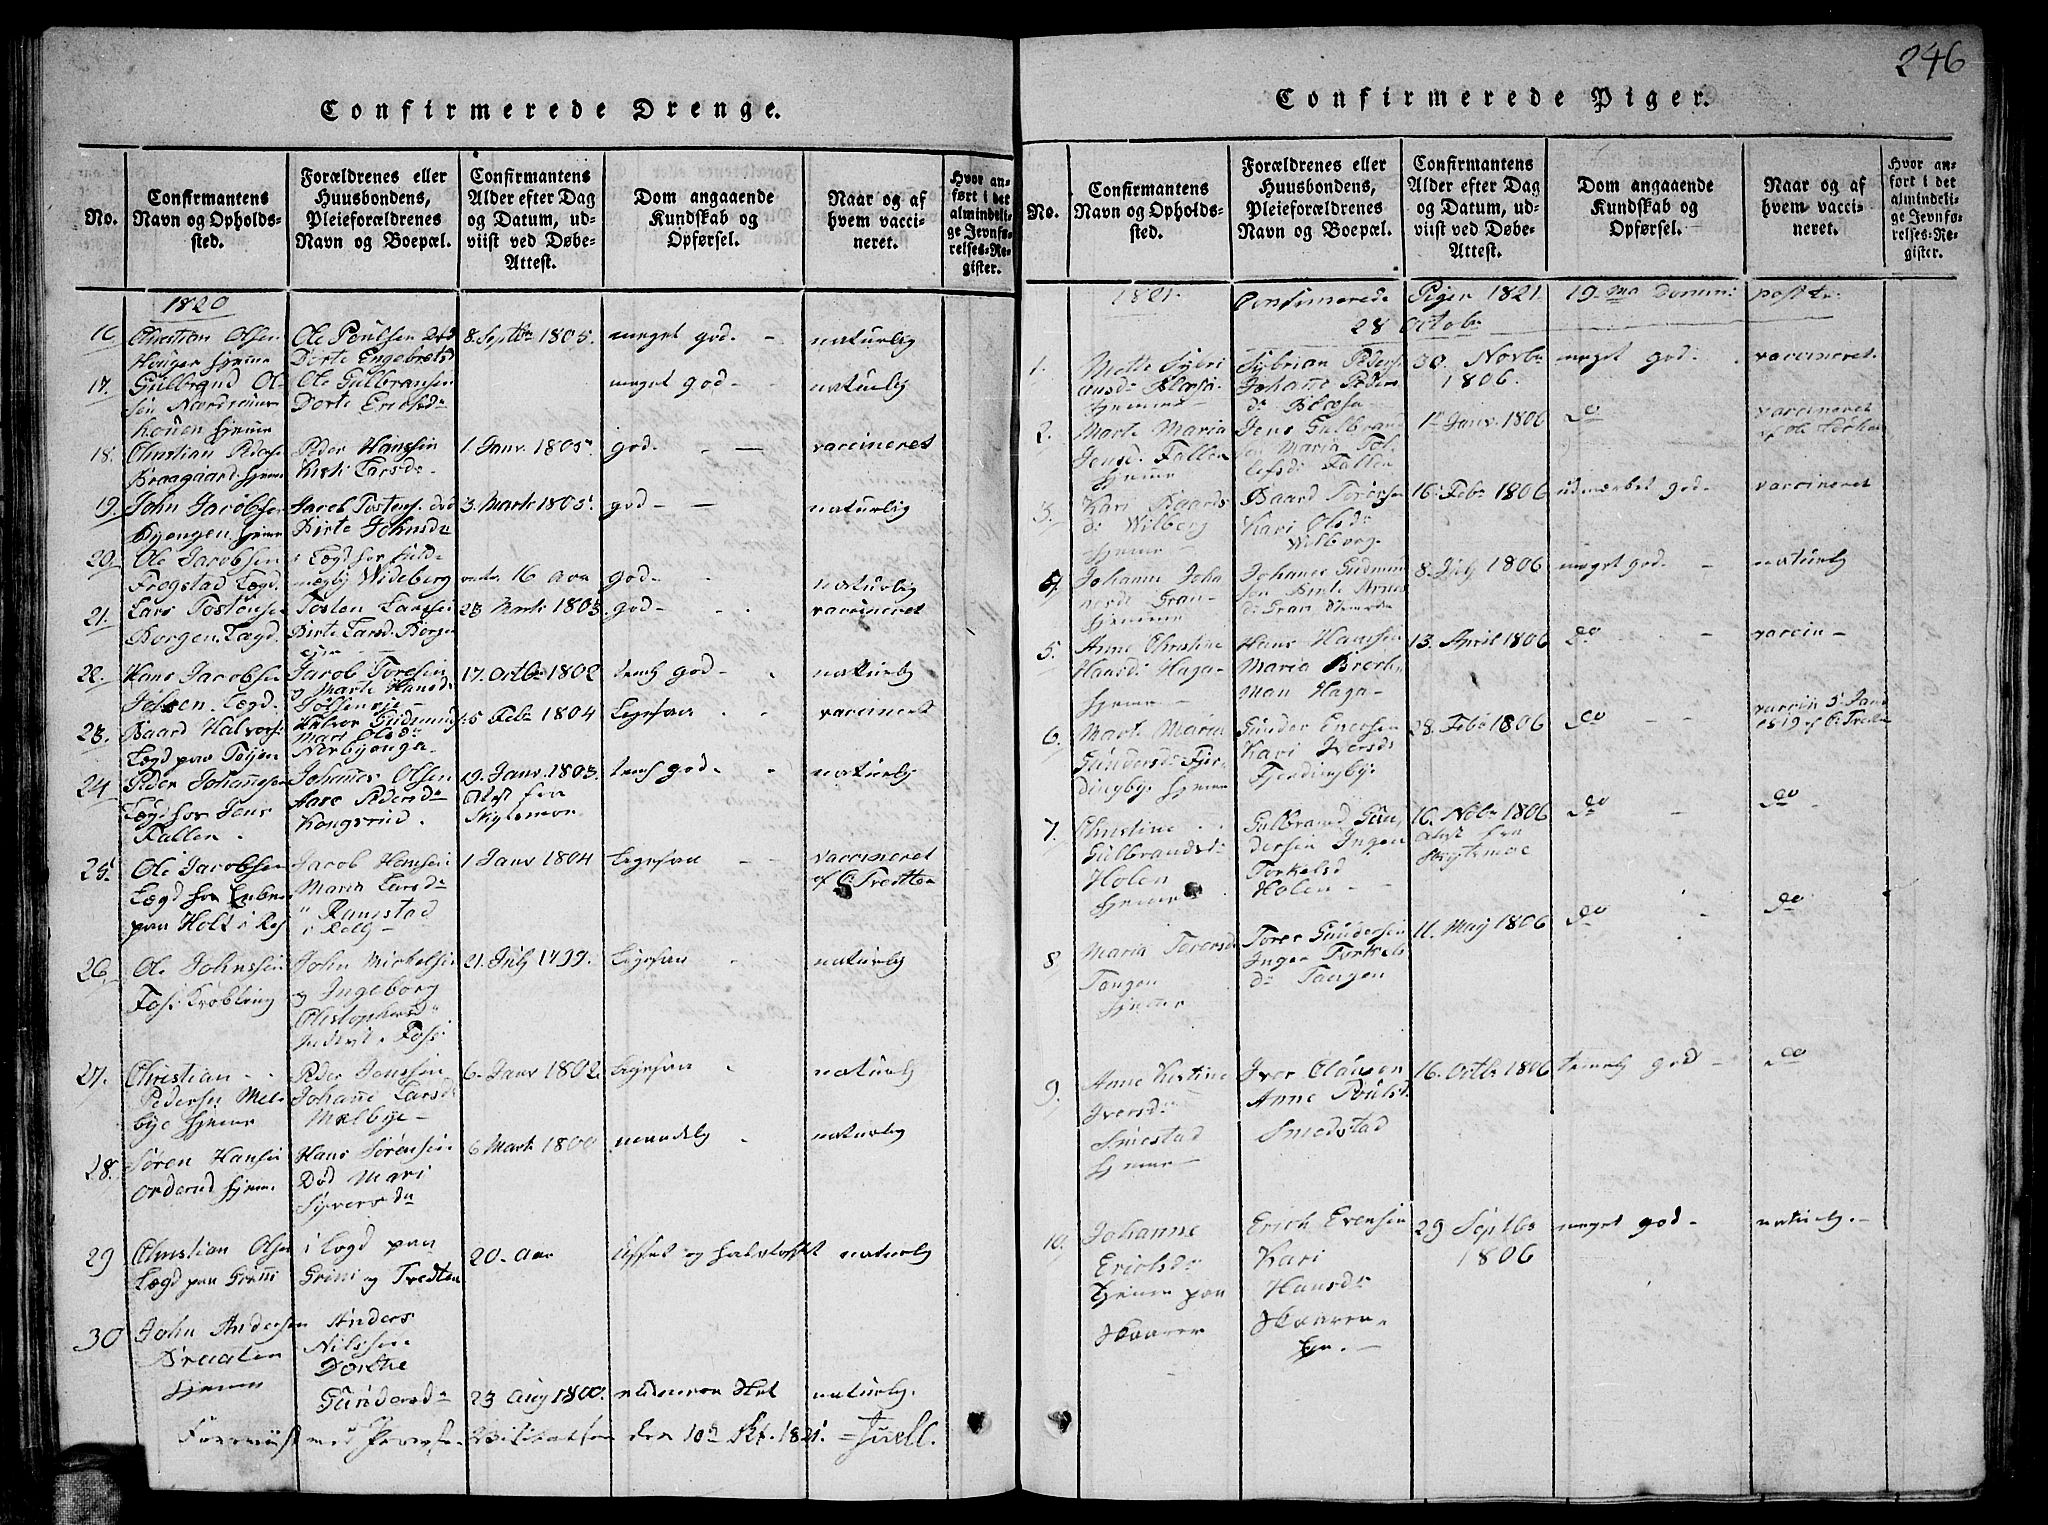 246
Confirmerede Drenge.
No.
Confirmantens
Navn og Opholds-
sted.
Forældrenes eller
Huusbondens,
Pleieforældrenes
Navn og Boepæl.
Confirmantens
Alder efter Dag
og Datum, ud-
viist ved Døbe-
Attest.
Dom angaaende
Kundskab og
Opførsel.
Naar og af
hvem vacci-
neret.
Hvor an-
ført i det
almindeli-
ge Jevnfø-
relses-Re-
gister.
1820
16
Christian Olsen
Houger hjeme
Ole Poulsen død
Dorte Engebretsd
8. Septbr 1805.
meget god
naturlig
17.
Gulbrand Ol-
sen
hjeme
Ole Gulbransen
Dorte Ericksdr
meget god
naturlig
18.
Christian Peders
Braagaard hjem
Peder Hansen
Kirsti Larsdr
1 Janv. 1805
god
vaccineret
19.
John Jacobsen
Bjongen hjeme
Jacob Tostens. død
Birte Johnsdr
3. Marti 1805
god
naturlig
20
Ole Jacobsen
Frogstad Lægd
i Lægd for
Wideberg
16 Aar
god
naturlig
21.
Lars Tostensen
Borgen. Lægd.
Tosten Larsen
Birte Larsd. Borgen
eje
23 Marti 1805.
god
vaccineret
22.
Hans Jacobsen
Jølsen. Lægd.
Jacob Toresen
og Marte Hansd
Jølseneje
17. Octbr 1802
temlig god
naturlig
23.
Baard Halvors
Lægd paa Tøjen
Halvor Gudmund
Mari Olsdr
Norbyenga
5 Febr 1804
Ligesaa
vaccineret
24.
Peder Johannesen
Lægd hos Jens
Fallen
Johannes Olsen
Aase Pedersdr
Kongsrud.
19. Janv. 1803.
Attest fra
Skytsmoe
teml god
naturlig
25
Ole Jacobsen
Lægd hos Enken
paa Holt i Rel
Jacob Hansen
Maria Larsdr
Ramstad
i Relg
1 Janv 1804
Ligesaa
vaccineret
af C. Tredtten
26
Ole Johnssen
Fos. Krobling
John Mikkelsen
og Ingeborg
Christophersdr
Inderst i Foss
21. July 1799.
Ligesaa
naturlig
27.
Christian
Pedersen Mel-
bye hjeme
Peder Jonssen
Johanne Larsdr
Melbye
6. Janv 1802.
Ligesaa
naturlig
28.
Søren Hansen
Orderud hjem.
Hans Sørensen
Død Mari
Syversdr
6 Marti 1800
maadelig
naturlig
29
Christian Olsen
Lægd paa Grini
i Lægd paa
Grini og Tredten
20. Aar
og
naturlig
30
John Andersen
Braaten
hjeme
Anders
Nilssen
Dorthe
Gundersdr
23 Aug 1800.
naturlig
Foreviist ved Provste-Visitatsen den 10de Sept. 1821. Juell.
Confirmerede Piger.
No.
Confirmantens
Navn og Opholds-
sted.
Forældrenes eller
Huusbondens,
Pleieforældrenes
Navn og Boepæl.
Confirmantens
Alder efter Dag
og Datum, ud-
viist ved Døbe-
Attest.
Dom angaaende
Kundskab og
Opførsel.
Naar og af
hvem vacci-
neret.
Hvor an-
ført i det
almindeli-
ge Jevnfø-
relses-Re-
gister.
1821. Confirmerede Piger 1821. 19ma Domini post tr:
28 Octobr
1.
Mette Syveri
ansdr
hjeme
Sybrian Peders
Johanne Peders
dr
30. Novbr
1806.
meget god
vaccineret
2.
Marte Maria
Jensd. Fallen
hjeme
Jens Gulbrand
sen Maria Tol-
lefsdr Fallen
1st Janv. 1806
do
vaccineret
3.
Kari Baards
dr Wilberg
hjeme
Baard Toresen
Kari Olsdr
Wilberg.
16 Febr 1806
udmærket god
vaccineret
4.
Johanne Joha
nesdr Gran
hjeme
Johanes Gudmun
sen Birte Arnes
dr Gran
8. July 1806
meget god
naturlig
5.
Anne Christine
Hansdr Haga
hjeme
Hans Hansen
Maria Broch
man Haga
13. April 1806
do
vaccin
6.
Marte Maria
Gundersd. Fjer-
dingby. hjeme
Gunder Eversen
Kari Iversdr
Fjerdingbye
28. Febr 1806
do
vaccin 5 Janv
1819 af C. Tredten
7.
Christine
Gulbrandsdr
Holen
hjeme
Gulbrand Gun
dersen Inger
Torkelsd
Holen
16. Novbr 1806
Attst fra
Skytsmoe
do
do
8
Maria Toresdr
Tangen
hjeme
Tore Gundersen
Inger Torkels
dr Tangen
11. May 1806
do
do
9.
Anne Kirstine
Iversdr
Smestad
hjeme
Iver Clausen
Anne Poulsd
Smedstad
16. Octbr 1806
temelig god
do
10.
Johanne
Ericksdr
hjeme paa
Skaarer
Erich Evensen
Kari
Hansdr
Skaarer
eje.
29 Septbr
1806
meget god
naturlig.